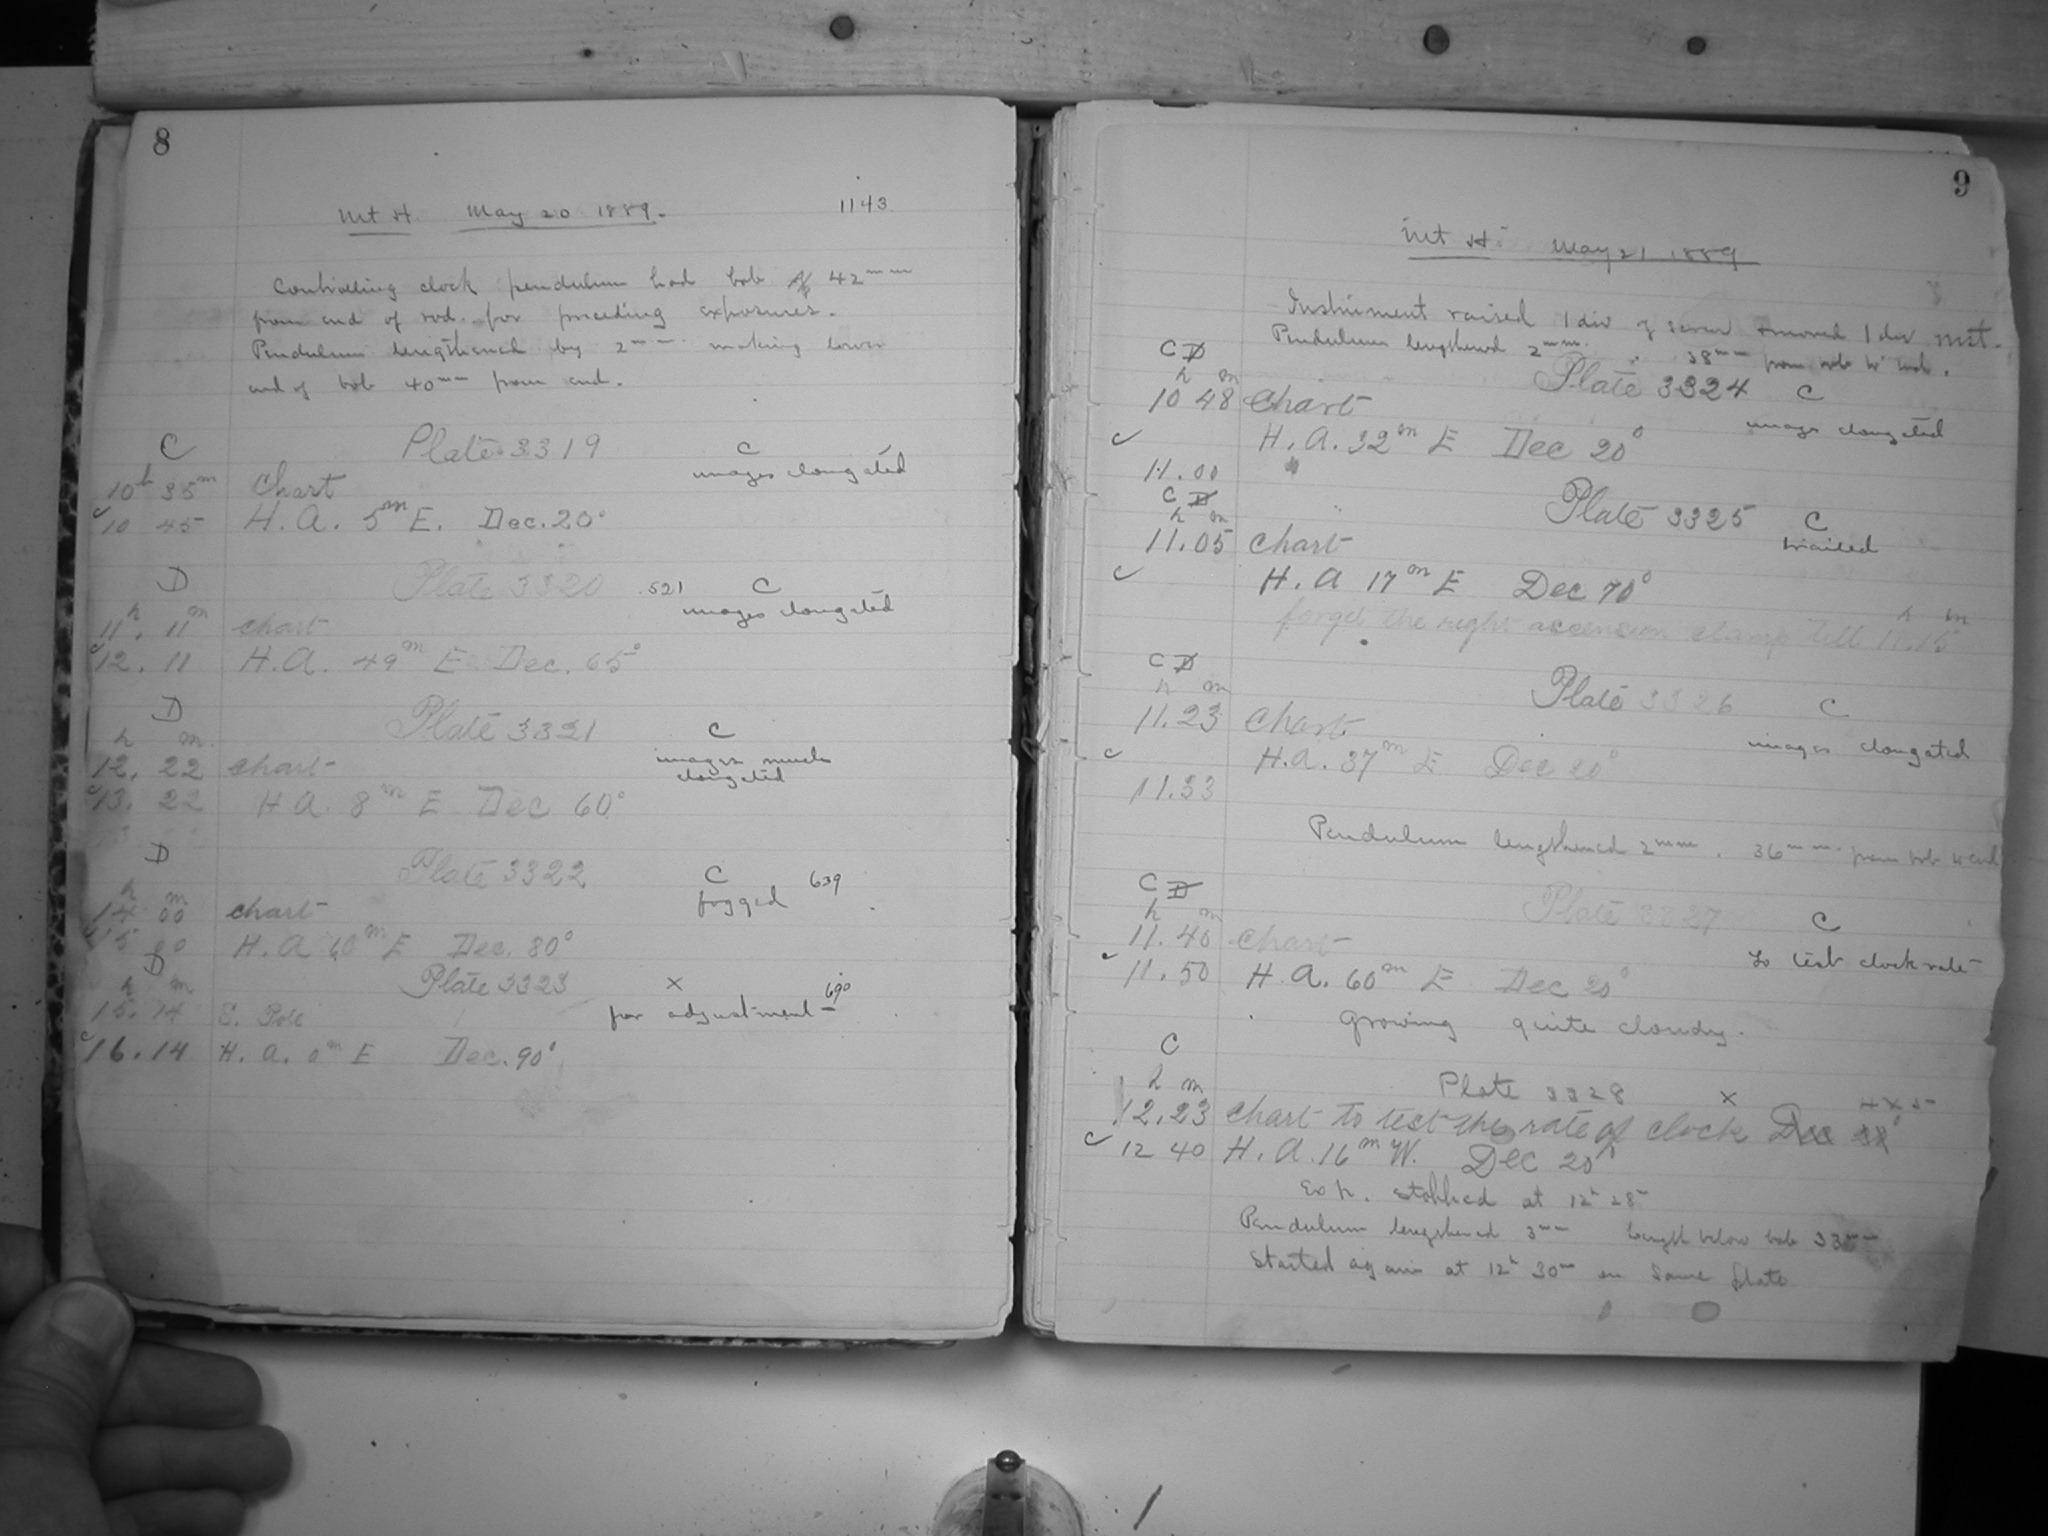 8
Mt H. May 20 1889. 1143
Controlling clock pendulum had bob 42mm
from end of rod for preceding exposures.
Pendulum lengthened by 2mm making lower
end of bob 40mm from end.
C Plate 3319 C
images elongated
10h 35m Chart
10 45 H.A. 5m E. Dec. 20°
D Plate 3320 521 C
images elongated
11h. 11m chart
12. 11 H.A. 49m E Dec. 65°
D Plate 3321 C
h m
images much
elongated
12. 22 chart
13. 22 H.A. 8m E Dec 60°
D Plate 3322 C 639
fogged
h m
14 00 chart
15 00 H.A 60m E Dec. 80°
D Plate 3323 X 690
h m
for adjustment
15. 14 S. Pole
16. 14 H.A. 0m E Dec. 90°
9
Mt H. May 21 1889
Instrument raised 1 div of screw & moved 1 div
Pendulum lengthened 2mm. 38mm from bob to end.
C D
h m Plate 3324 C
10 48 Chart
images elongated
H.A. 32m E Dec 20°
11.00
C D Plate 3325 C
h m
11.05 Chart
trailed
H.A 17m E Dec 70°
forget the right ascension clamp till 11h.15m
C D
h m Plate 3326 C
11.23 Chart
images elongated
H.A. 37m E Dec 20°
11.33
Pendulum lengthened 2mm. 36mm from bob to end
C D
h m Plate 3327 C
11.40 chart
to test clock rate
11.50 H.A. 60m E Dec 20°
Growing quite cloudy.
C
h m Plate 3328 X
12.23 Chart to test the rate of clock Dec
12 40 H.A. 16m W. Dec 20°
Exp. stopped at 12h 28m
Pendulum lengthened 3mm length below bob 33mm
Started again at 12h 30m on same plate